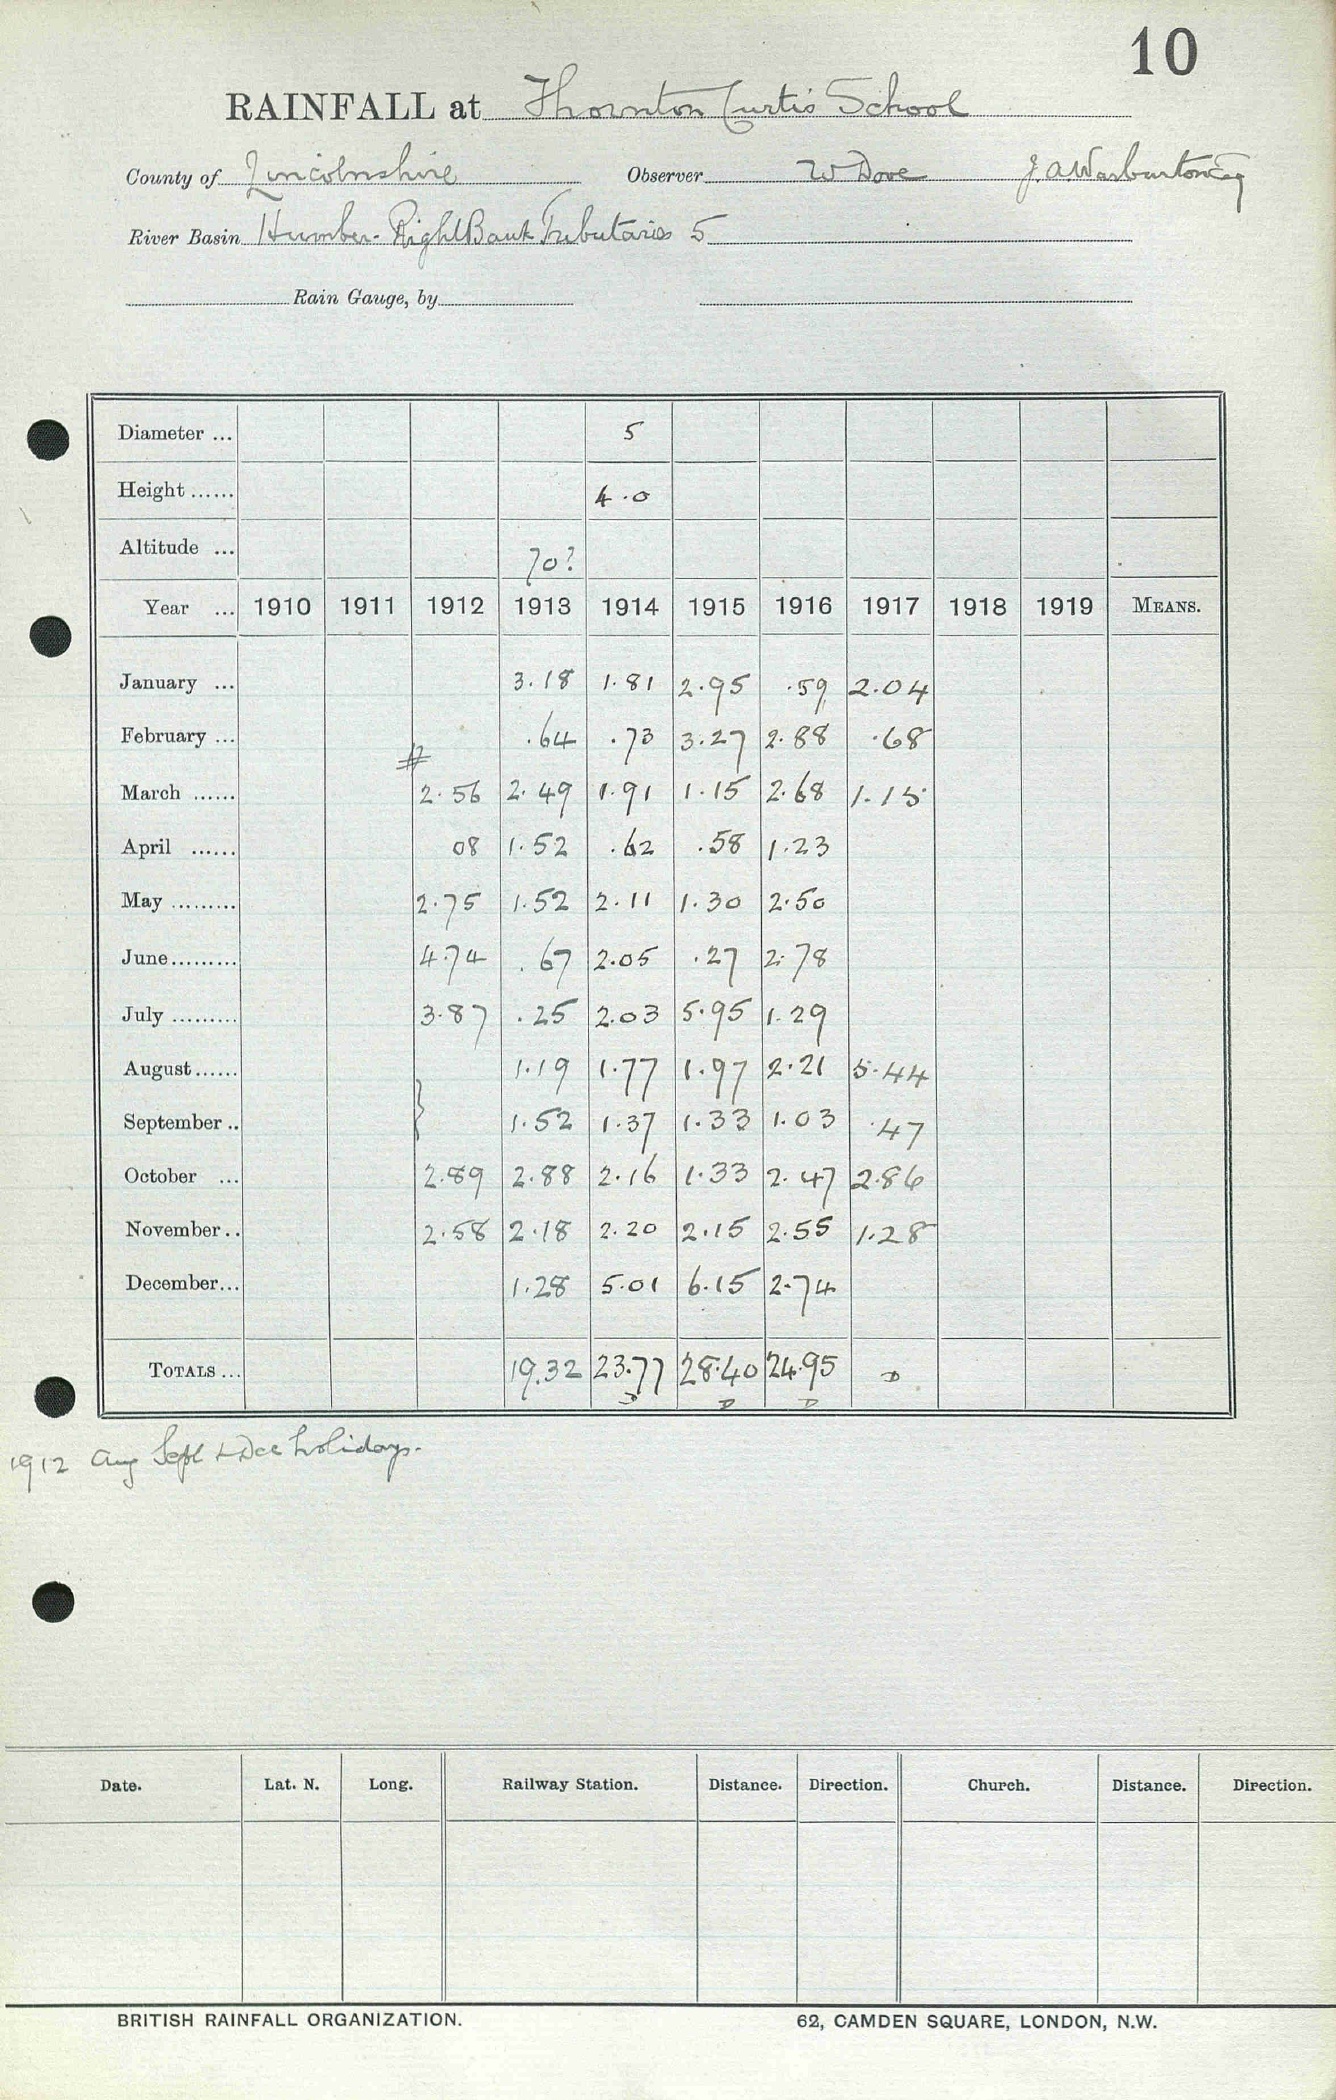 10
RAINFALL at Thornton Curtis School
County of Lincolnshire Observer W Dove J. A Warburton Esq
River Basin Humber - Right Bank Tributaries 5
Rain Gauge, by
Diameter ... 5
Height ...... 4.0
Altitude ... 70?
Year ... 1910 1911 1912 1913 1914 1915 1916 1917 1918 1919 MEANS.
January ... 3.18 1.81 2.95 .59 2.04
February ... .64 .73 3.27 2.88 .68
March ...... 2.56 2.49 1.91 1.15 2.68 1.15
April ...... 08 1.52 .62 .58 1.23
May ......... 2.75 1.52 2.11 1.30 2.50
June......... 4.74 .67 2.05 .27 2.78
July ......... 3.87 .25 2.03 5.95 1.29
August...... 1.19 1.77 1.97 2.21 5.44
September .. } 1.52 1.37 1.33 1.03 .47
October ... 2.89 2.88 2.16 1.33 2.47 2.86
November.. 2.58 2.18 2.20 2.15 2.55 1.28
December... 1.28 5.01 6.15 2.74
TOTALS ... 19.32 23.77 28.40 24.95 D
D D D
1912 Aug Sept & Dec holidays.
Date. Lat. N. Long. Railway Station. Distance. Direction. Church. Distance. Direction.
BRITISH RAINFALL ORGANIZATION. 62, CAMDEN SQUARE, LONDON, N.W.